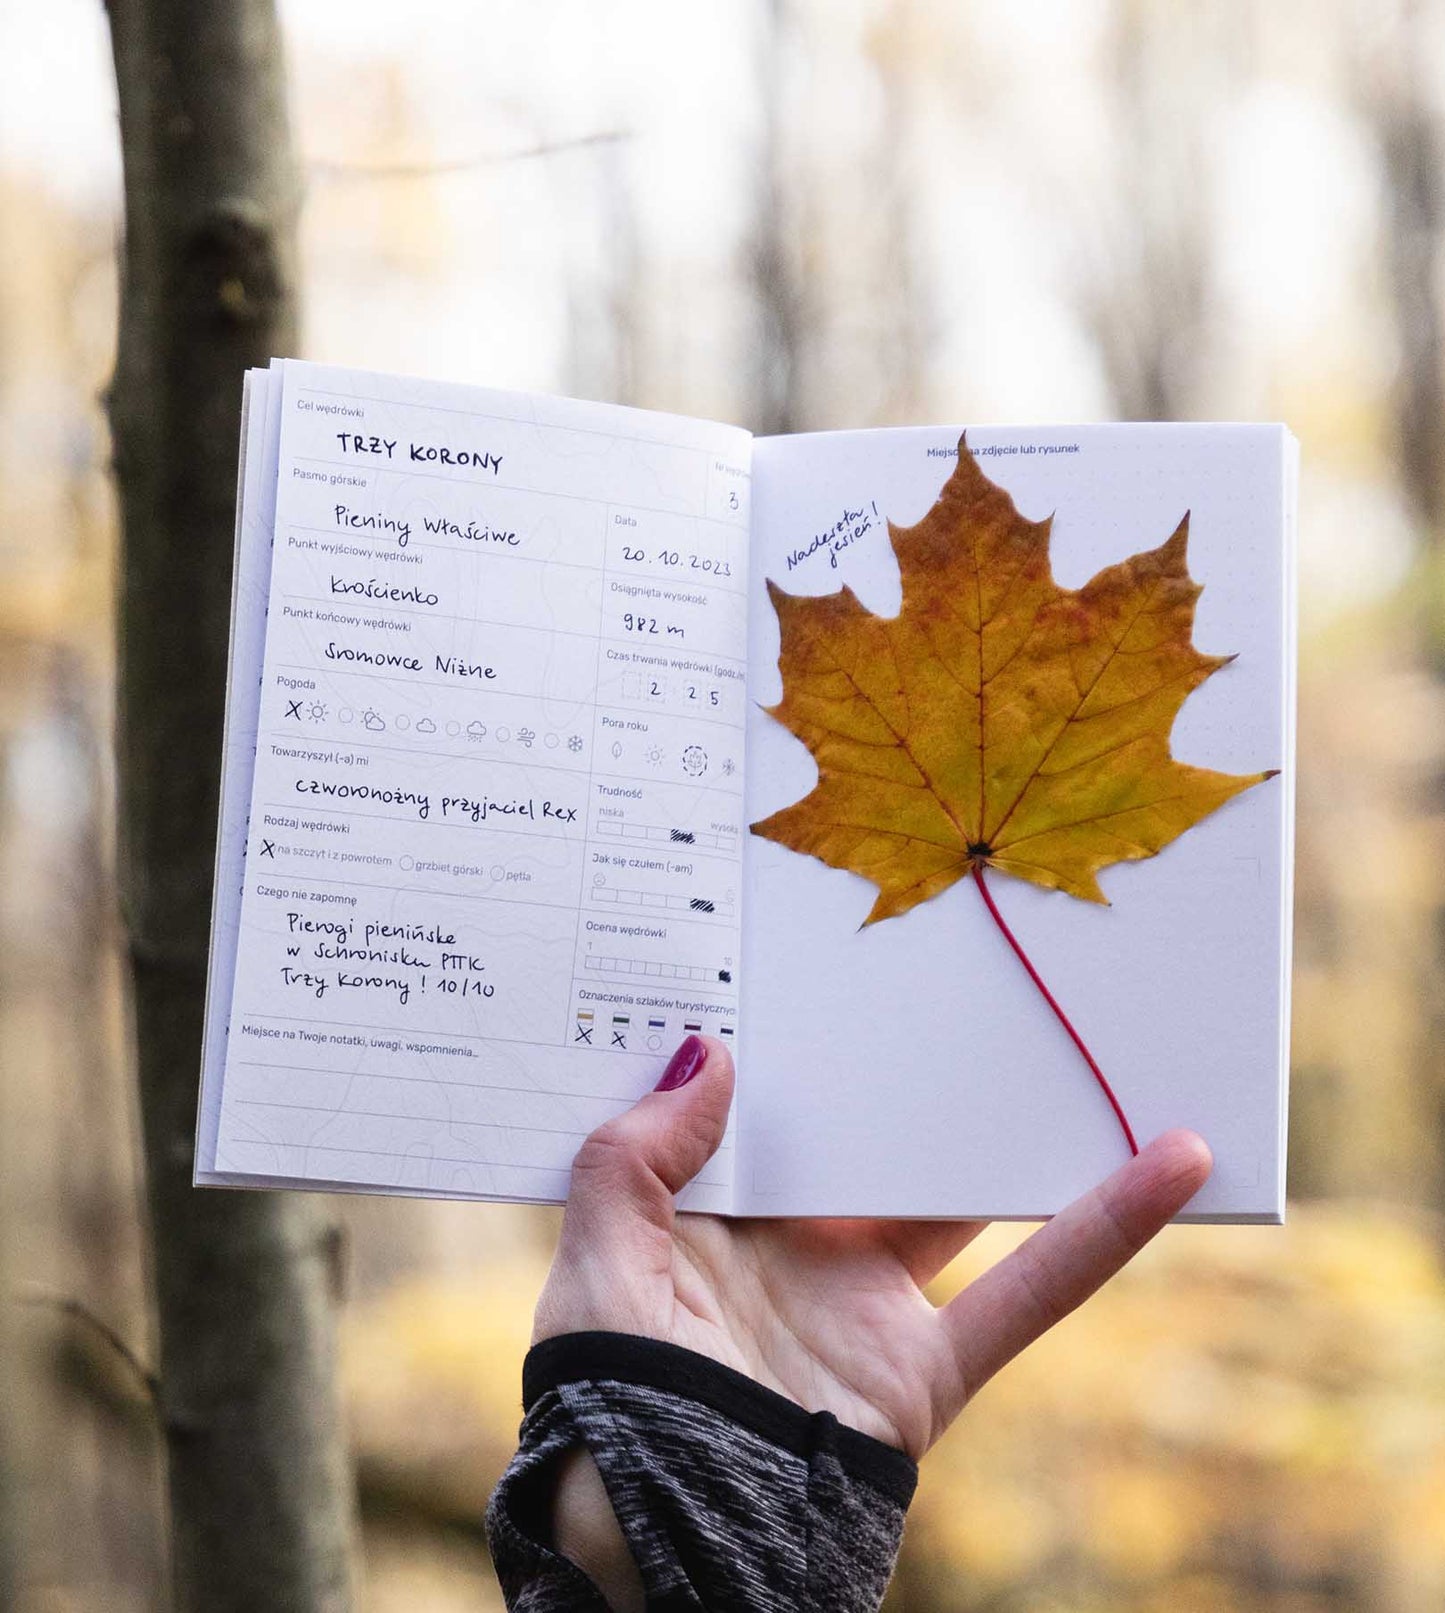 Cel wędrówki
TRZY KORONY
3
Pasmo górskie
Pieniny Właściwe
Data
20.10.2023
Punkt wyjściowy wędrówki
Krościenko
Osiągnięta wysokość
982 m
Punkt końcowy wędrówki
Sromowce Niżne
Czas trwania wędrówki (godz./
2 25
Pogoda
X
Pora roku
Towarzyszył (-a) mi
czworonożny przyjaciel Rex
Trudność
niska wysoka
Rodzaj wędrówki
X na szczyt i z powrotem grzbiet górski pętla
Jak się czułem (-am)
Czego nie zapomnę
Pierogi pienińskie
w Schronisku PTTK
Trzy Korony! 10/10
Ocena wędrówki
1 10
Oznaczenia szlaków turystyczny
X X
Miejsce na Twoje notatki, uwagi, wspomnienia...
Miejsc na zdjęcie lub rysunek
Nadeszła
jesień!